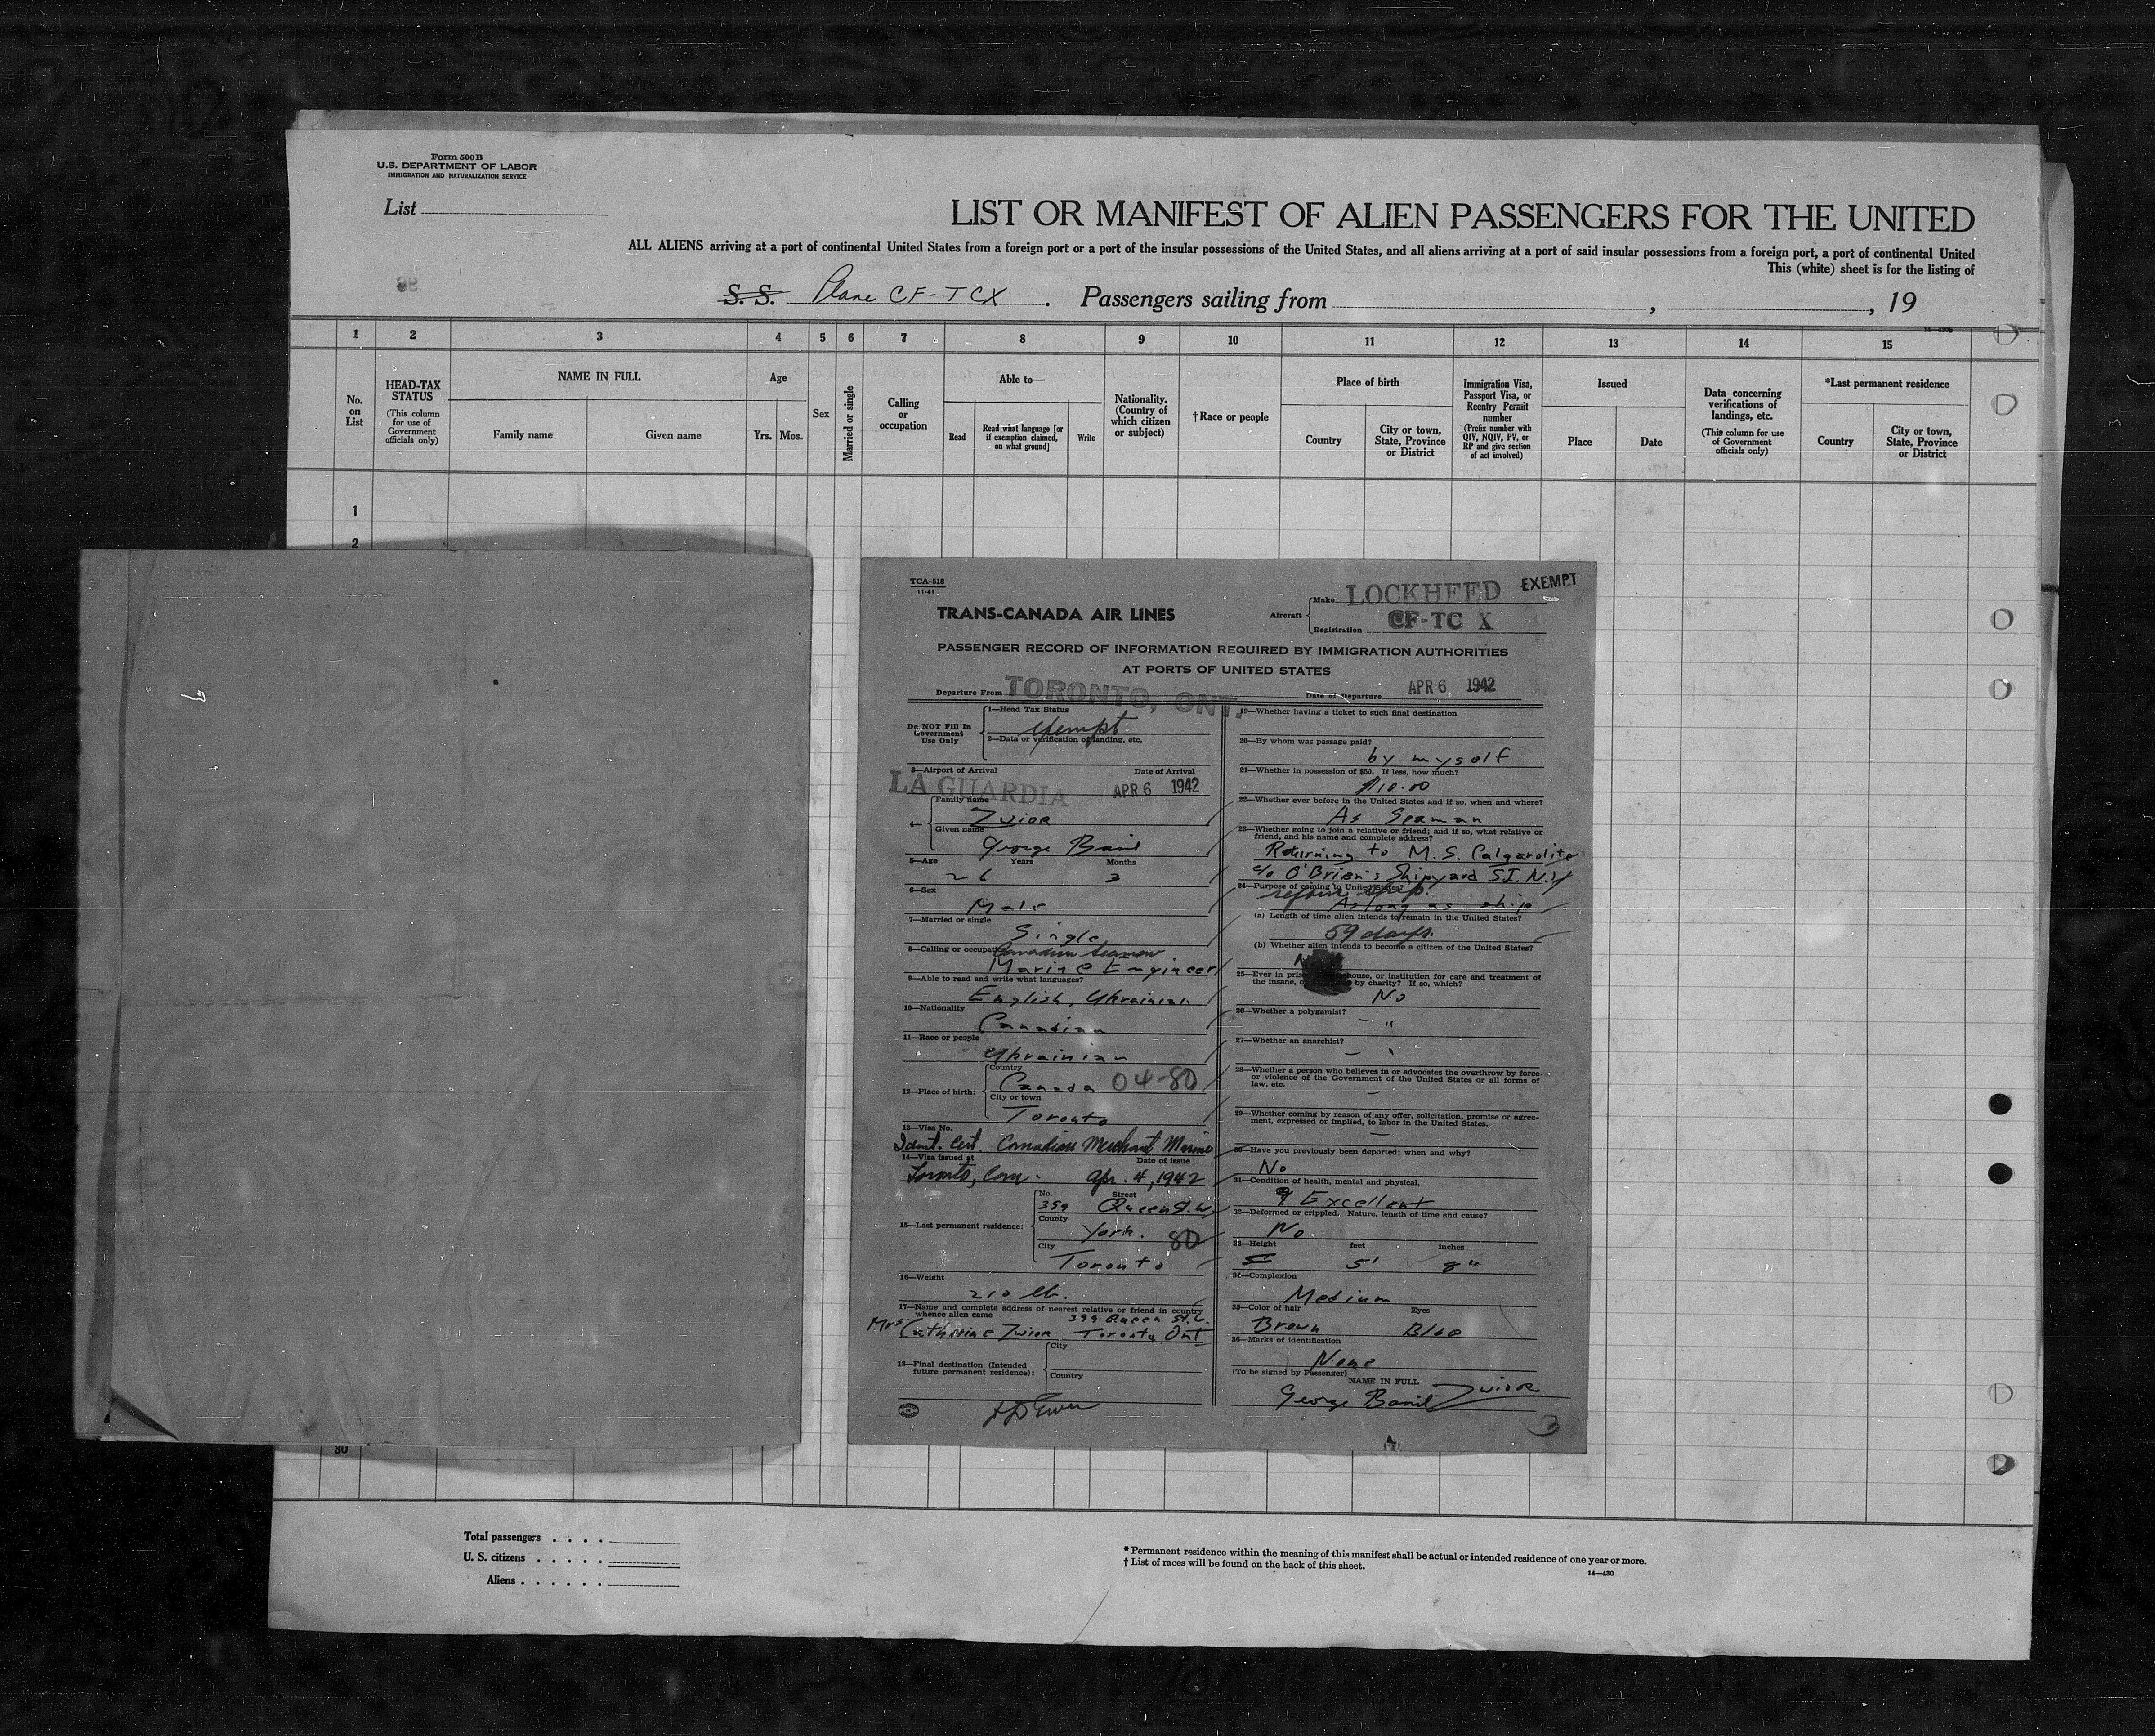 Form 500B
U.S. DEPARTMENT OF LABOR
IMMIGRATION AND NATURALIZATION SERVICE
List
LIST OR MANIFEST OF ALIEN PASSENGERS FOR THE UNITED
ALL ALIENS arriving at a port of continental United States from a foreign port or a port of the insular possessions of the United States, and all aliens arriving at a port of said insular possessions from a foreign port, a port of continental United
This (white) sheet is for the listing of
S. S. Plane CF-TCX . Passengers sailing from , , 19
1 2 3 4 5 6 7 8 9 10 11 12 13 14 15
No. on List
HEAD-TAX STATUS
(This column for use of Government officials only)
NAME IN FULL
Family name Given name
Age
Yrs. Mos.
Sex
Married or single
Calling or occupation
Able to—
Read
Read what language [or if exemption claimed, on what ground]
Write
Nationality. (Country of which citizen or subject)
†Race or people
Place of birth
Country
City or town, State, Province or District
Immigration Visa, Passport Visa, or Reentry Permit number
(Prefix number with QIV, NQIV, PV, or RP and give section of act involved)
Issued
Place Date
Data concerning verifications of landings, etc.
(This column for use of Government officials only)
*Last permanent residence
Country
City or town, State, Province or District
1
2
TCA-518
11-41
TRANS-CANADA AIR LINES
Aircraft
Make LOCKHEED
EXEMPT
Registration CF-TC X
PASSENGER RECORD OF INFORMATION REQUIRED BY IMMIGRATION AUTHORITIES
AT PORTS OF UNITED STATES
Departure From TORONTO, ONT.
Date of Departure APR 6 1942
Do NOT Fill In Government Use Only
1—Head Tax Status
exempt
2—Data or verification of landing, etc.
3—Airport of Arrival Date of Arrival
LA GUARDIA APR 6 1942
4—
Family name
Zwior
Given name
George Basil
5—Age Years Months
26 3
6—Sex
Male
7—Married or single
Single
8—Calling or occupation
Canadian Seaman
Marine Engineer
9—Able to read and write what languages?
English, Ukrainian
10—Nationality
Canadian
11—Race or people
Ukrainian
12—Place of birth:
Country
Canada 04-80
City or town
Toronto
13—Visa No.
Ident. Cert. Canadian Merchant Marine
14—Visa issued at Date of issue
Toronto, Can. Apr. 4, 1942
15—Last permanent residence:
No. Street
399 Queen St. W.
County
York. 80
City
Toronto
16—Weight
210 lb.
17—Name and complete address of nearest relative or friend in country whence alien came
399 Queen St. W.
Mrs. Catherine Zwior Toronto Ont
18—Final destination (Intended future permanent residence):
City
Country
19—Whether having a ticket to such final destination
20—By whom was passage paid?
by myself
21—Whether in possession of $50. If less, how much?
$10.00
22—Whether ever before in the United States and if so, when and where?
As Seaman
23—Whether going to join a relative or friend; and if so, what relative or
friend, and his name and complete address?
Returning to M.S. Calgarolite
c/o O'Brien's Shipyard S.I. N.Y
24—Purpose of coming to United States?
rejoin ship.
As long as ship
(a) Length of time alien intends to remain in the United States?
59 days.
(b) Whether alien intends to become a citizen of the United States?
25—Ever in house, or institution for care and treatment of
the insane, by charity? If so, which?
No
26—Whether a polygamist?
— "
27—Whether an anarchist?
—
28—Whether a person who believes in or advocates the overthrow by force
or violence of the Government of the United States or all forms of
law, etc.
—
29—Whether coming by reason of any offer, solicitation, promise or agree-
ment, expressed or implied, to labor in the United States.
—
30—Have you previously been deported; when and why?
No
31—Condition of health, mental and physical.
Excellent
32—Deformed or crippled. Nature, length of time and cause?
No
33—Height feet inches
5' 8"
34—Complexion
Medium
35—Color of hair Eyes
Brown Blue
36—Marks of identification
None
(To be signed by Passenger)
NAME IN FULL
George Basil Zwior
3
30
Total passengers . . . .
U. S. citizens . . . . .
Aliens . . . . . .
* Permanent residence within the meaning of this manifest shall be actual or intended residence of one year or more.
† List of races will be found on the back of this sheet.
14—430